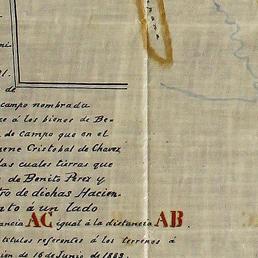 de
campo nombradu
e á los bienes de Be-
de campo que en el
ene Cristobal de Chavez
las cuales tierras que
de Benito Perez y
tro de dichas Hacien-
nto á un lado
tancia AC igual á la distancia AB.
titulos referentes á los terrenos á
ion de 16 de Junio de 1883.